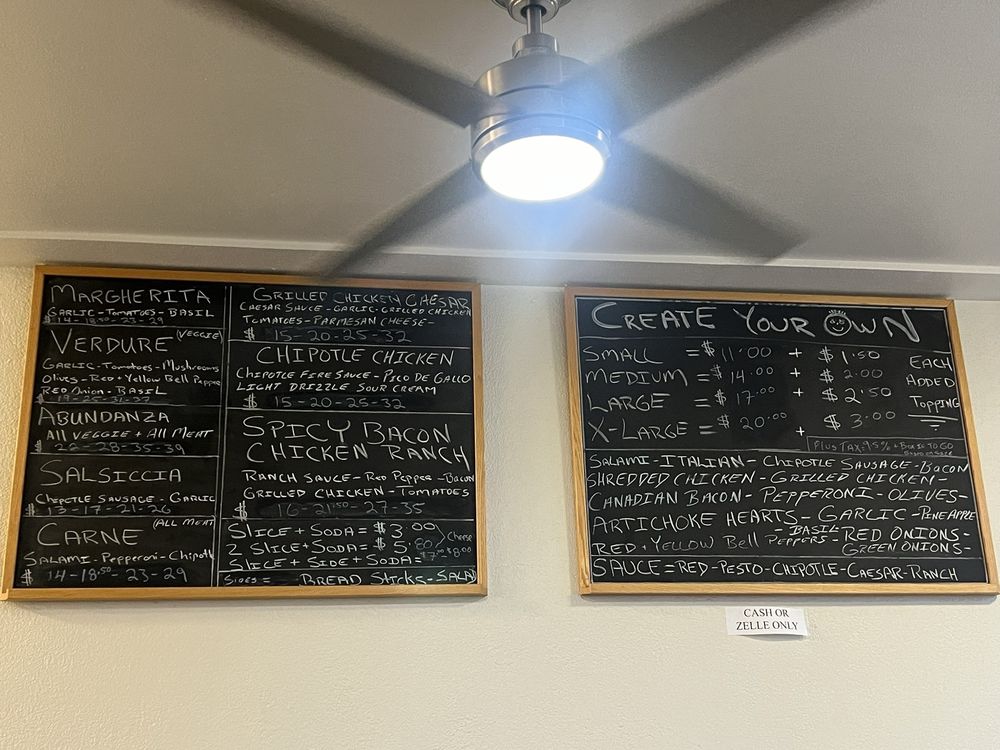 MARGHERITA
GARLIC - TOMATOES - BASIL
$14 - 18.50 - 23 - 29
VERDURE (VEGGIE)
GARLIC - TOMATOES - MUSHROOMS
OLIVES - RED + YELLOW BELL PEPPER
RED ONION - BASIL
ABUNDANZA
ALL VEGGIE + ALL MEAT
$ 22 - 28 - 35 - 39
SALSICCIA
CHIPOTLE SAUSAGE - GARLIC
$ 13 - 17 - 21 - 26
CARNE (ALL MEAT
SALAMI - PEPPERONI - CHIPOTL
$ 14 - 18.50 - 23 - 29
GRILLED CHICKEN CAESAR
CAESAR SAUCE - GARLIC - GRILLED CHICKEN
TOMATOES - PARMESAN CHEESE -
$ 15 - 20 - 25 - 32
CHIPOTLE CHICKEN
CHIPOTLE FIRE SAUCE - PICO DE GALLO
LIGHT DRIZZLE SOUR CREAM
$ 15 - 20 - 25 - 32
SPICY BACON
CHICKEN RANCH
RANCH SAUCE - RED PEPPER - BACON
GRILLED CHICKEN - TOMATOES
$ 16 - 21.50 - 27 - 35
SLICE + SODA = $3.00
2 SLICE + SODA = $5. CHEESE
SLICE + SIDE + SODA = $8.00
SIDES = BREAD STICKS - SALAD
CREATE YOUR OWN
SMALL = $ 11.00 + $1.50
MEDIUM = $ 14.00 + $2.00
LARGE = $ 17.00 + $2.50
X-LARGE = $ 20.00 + $3.00
EACH
ADDED
TOPPING
PLUS TAX = 9.5% + BOX TO GO
SALAMI - ITALIAN - CHIPOTLE SAUSAGE - BACON
SHREDDED CHICKEN - GRILLED CHICKEN -
CANADIAN BACON - PEPPERONI - OLIVES -
ARTICHOKE HEARTS - GARLIC - PINEAPPLE
- BASIL - RED ONIONS -
RED + YELLOW BELL PEPPERS - GREEN ONIONS -
SAUCE = RED - PESTO - CHIPOTLE - CAESAR - RANCH
CASH OR
ZELLE ONLY